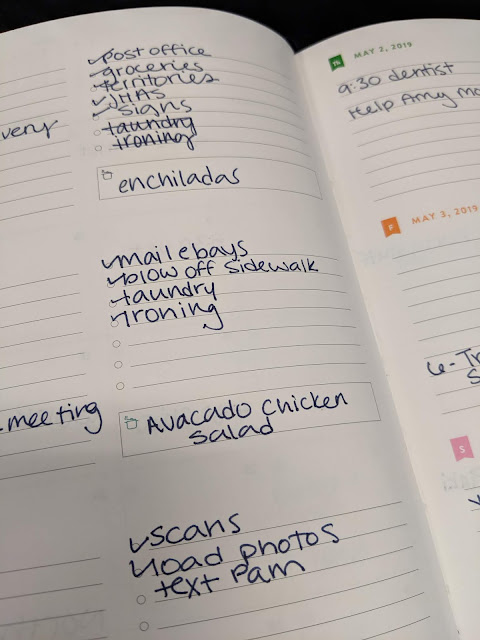 post office
groceries
territories
JHAS
signs
laundry
ironing
enchiladas
very
mail ebays
blow off sidewalk
laundry
ironing
meeting
Avacado Chicken
salad
scans
load photos
text Pam
Th
MAY 2, 2019
9:30 dentist
Help Amy
F
MAY 3, 2019
6-
S